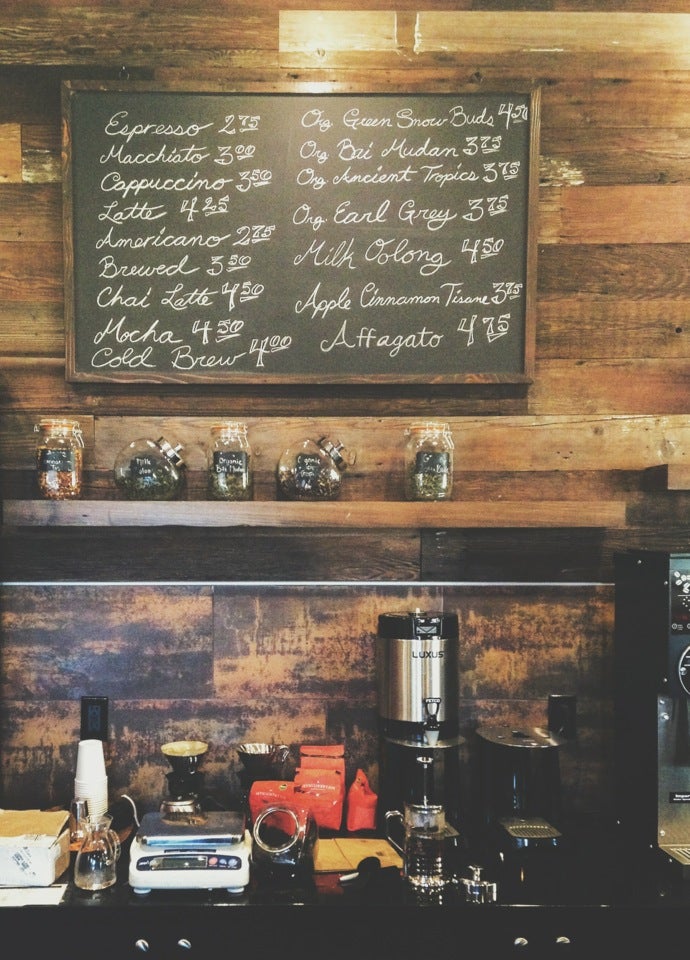 Espresso 2.75
Macchiato 3.00
Cappuccino 3.50
Latte 4.25
Americano 2.75
Brewed 3.50
Chai Latte 4.50
Mocha 4.50
Cold Brew 4.00
Org. Green Snow Buds 4.50
Org. Bai Mudan 3.75
Org. Ancient Tropics 3.75
Org. Earl Grey 3.75
Milk Oolong 4.50
Apple Cinnamon Tisane 3.75
Affagato 4.75
Milk
Organic
Organic
LUXUS
FETCO